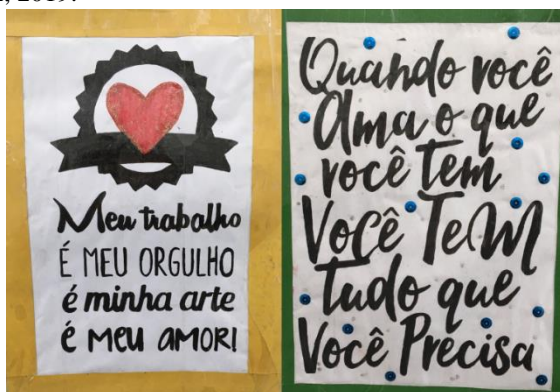 2019.
Meu trabalho
É MEU ORGULHO
é minha arte
é MEU AMOR!
Quando você
Ama o que
você tem
Você TeM
tudo que
Você Precisa